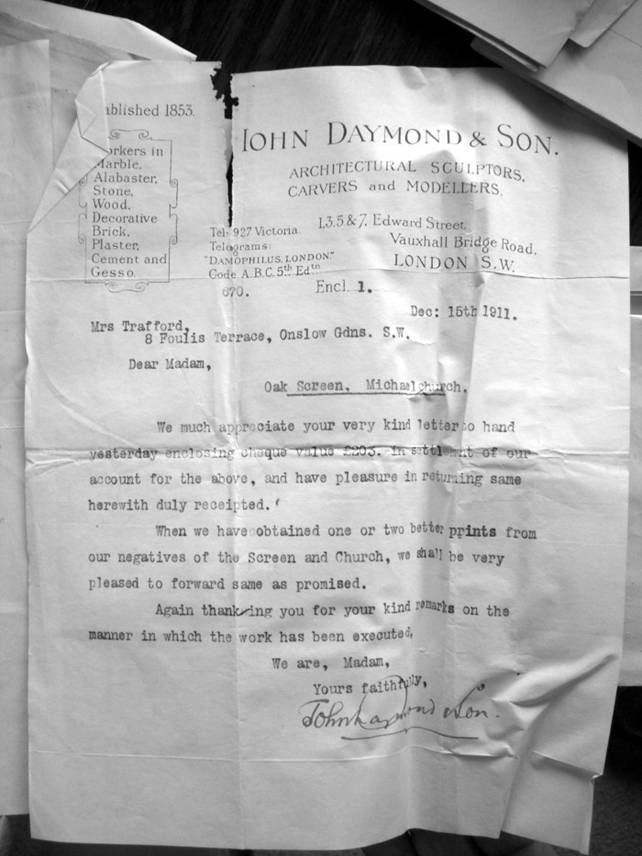 ablished 1853.
orkers in
Marble,
Alabaster,
Stone,
Wood,
Decorative
Brick,
Plaster,
Cement and
Gesso.
JOHN DAYMOND & SON.
ARCHITECTURAL SCULPTORS,
CARVERS and MODELLERS.
Tel: 927 Victoria.
Telegrams:
"DAMOPHILUS, LONDON"
Code A.B.C. 5th Edtn
1,3,5 & 7, Edward Street,
Vauxhall Bridge Road,
LONDON S.W.
670.
Encl 1.
Dec: 15th 1911.
Mrs Trafford,
8 Foulis Terrace, Onslow Gdns. S.W.
Dear Madam,
Oak Screen, Michaelchurch.
We much appreciate your very kind letter to hand
yesterday enclosing cheque value £203. in settlement of our
account for the above, and have pleasure in returning same
herewith duly receipted.
When we have obtained one or two better prints from
our negatives of the Screen and Church, we shall be very
pleased to forward same as promised.
Again thanking you for your kind remarks on the
manner in which the work has been executed,
We are, Madam,
Yours faithfully,
John Daymond & Son.